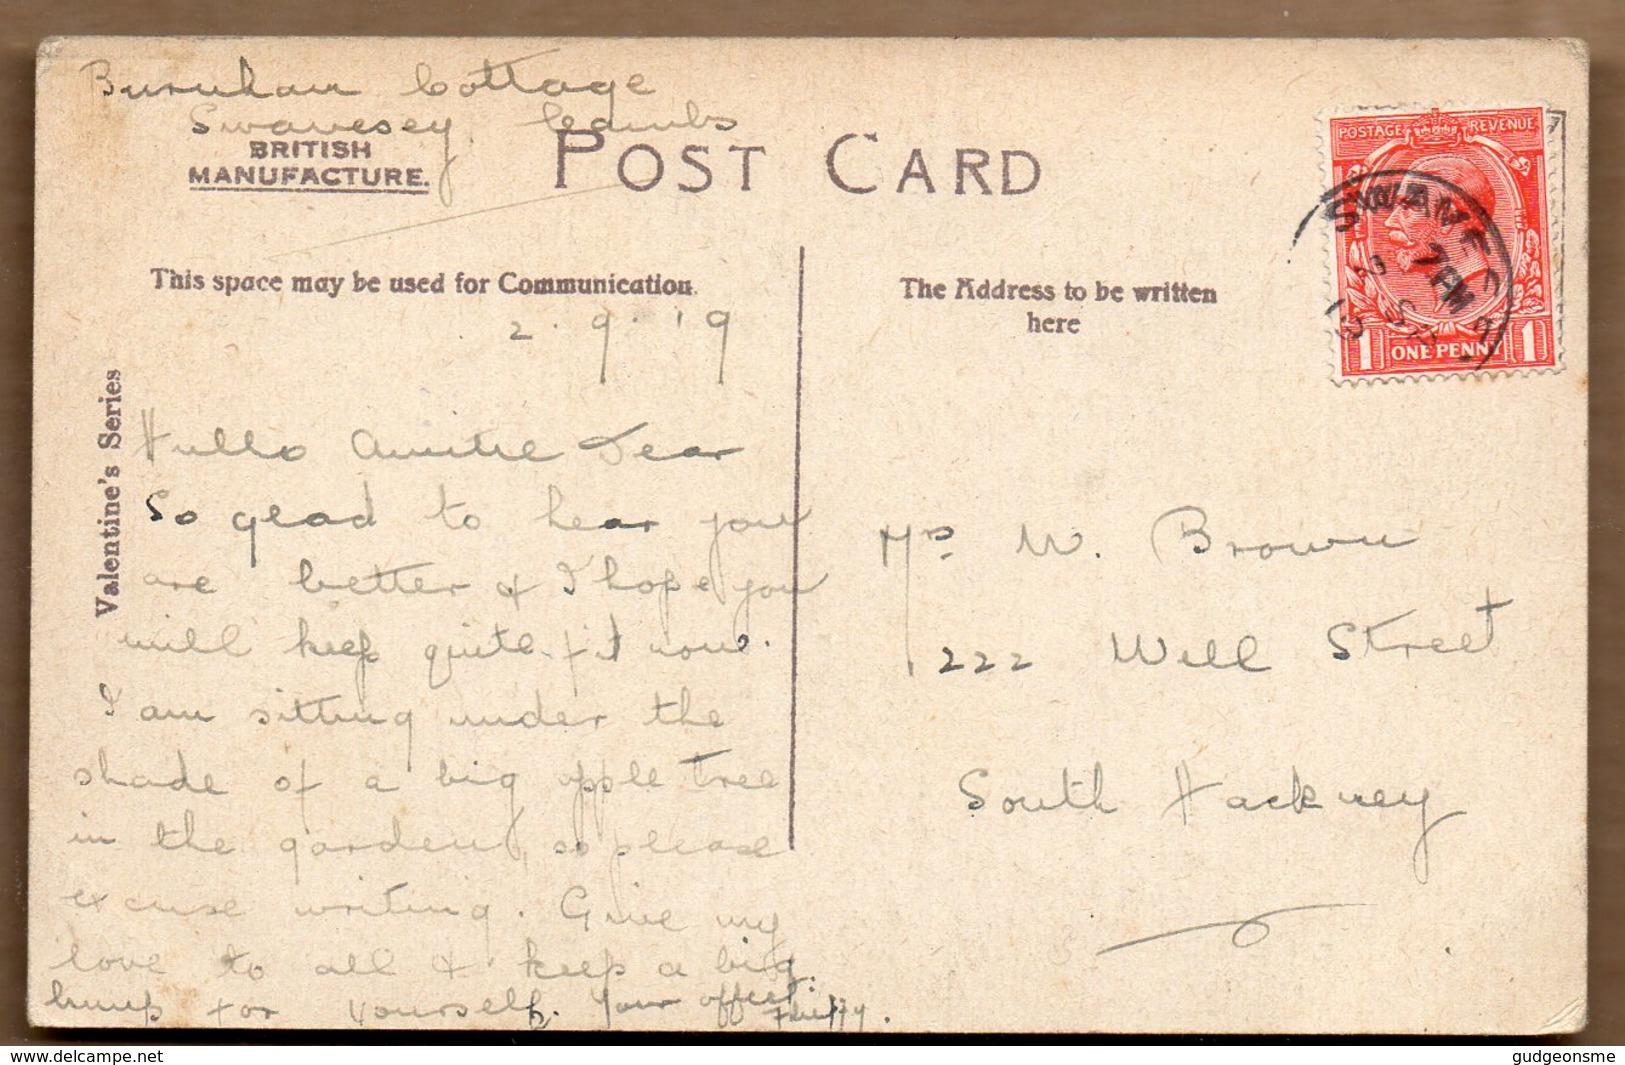 Burnham Cottage
Swavesey. Cambs
BRITISH
MANUFACTURE.
POST CARD
POSTAGE REVENUE
SWAVESEY
7 PM
2 SP
19
1 ONE PENNY 1
This space may be used for Communication
The Address to be written
here
Valentine's Series
2.9.'19
Hullo Auntie Dear
So glad to hear you
are better & I hope you
will keep quite fit now.
I am sitting under the
shade of a big apple tree
in the garden, so please
excuse writing. Give my
love to all & keep a big
lump for yourself. Your affect:
Mrs. W. Brown
222 Well Street
South Hackney
www.delcampe.net
gudgeonsme